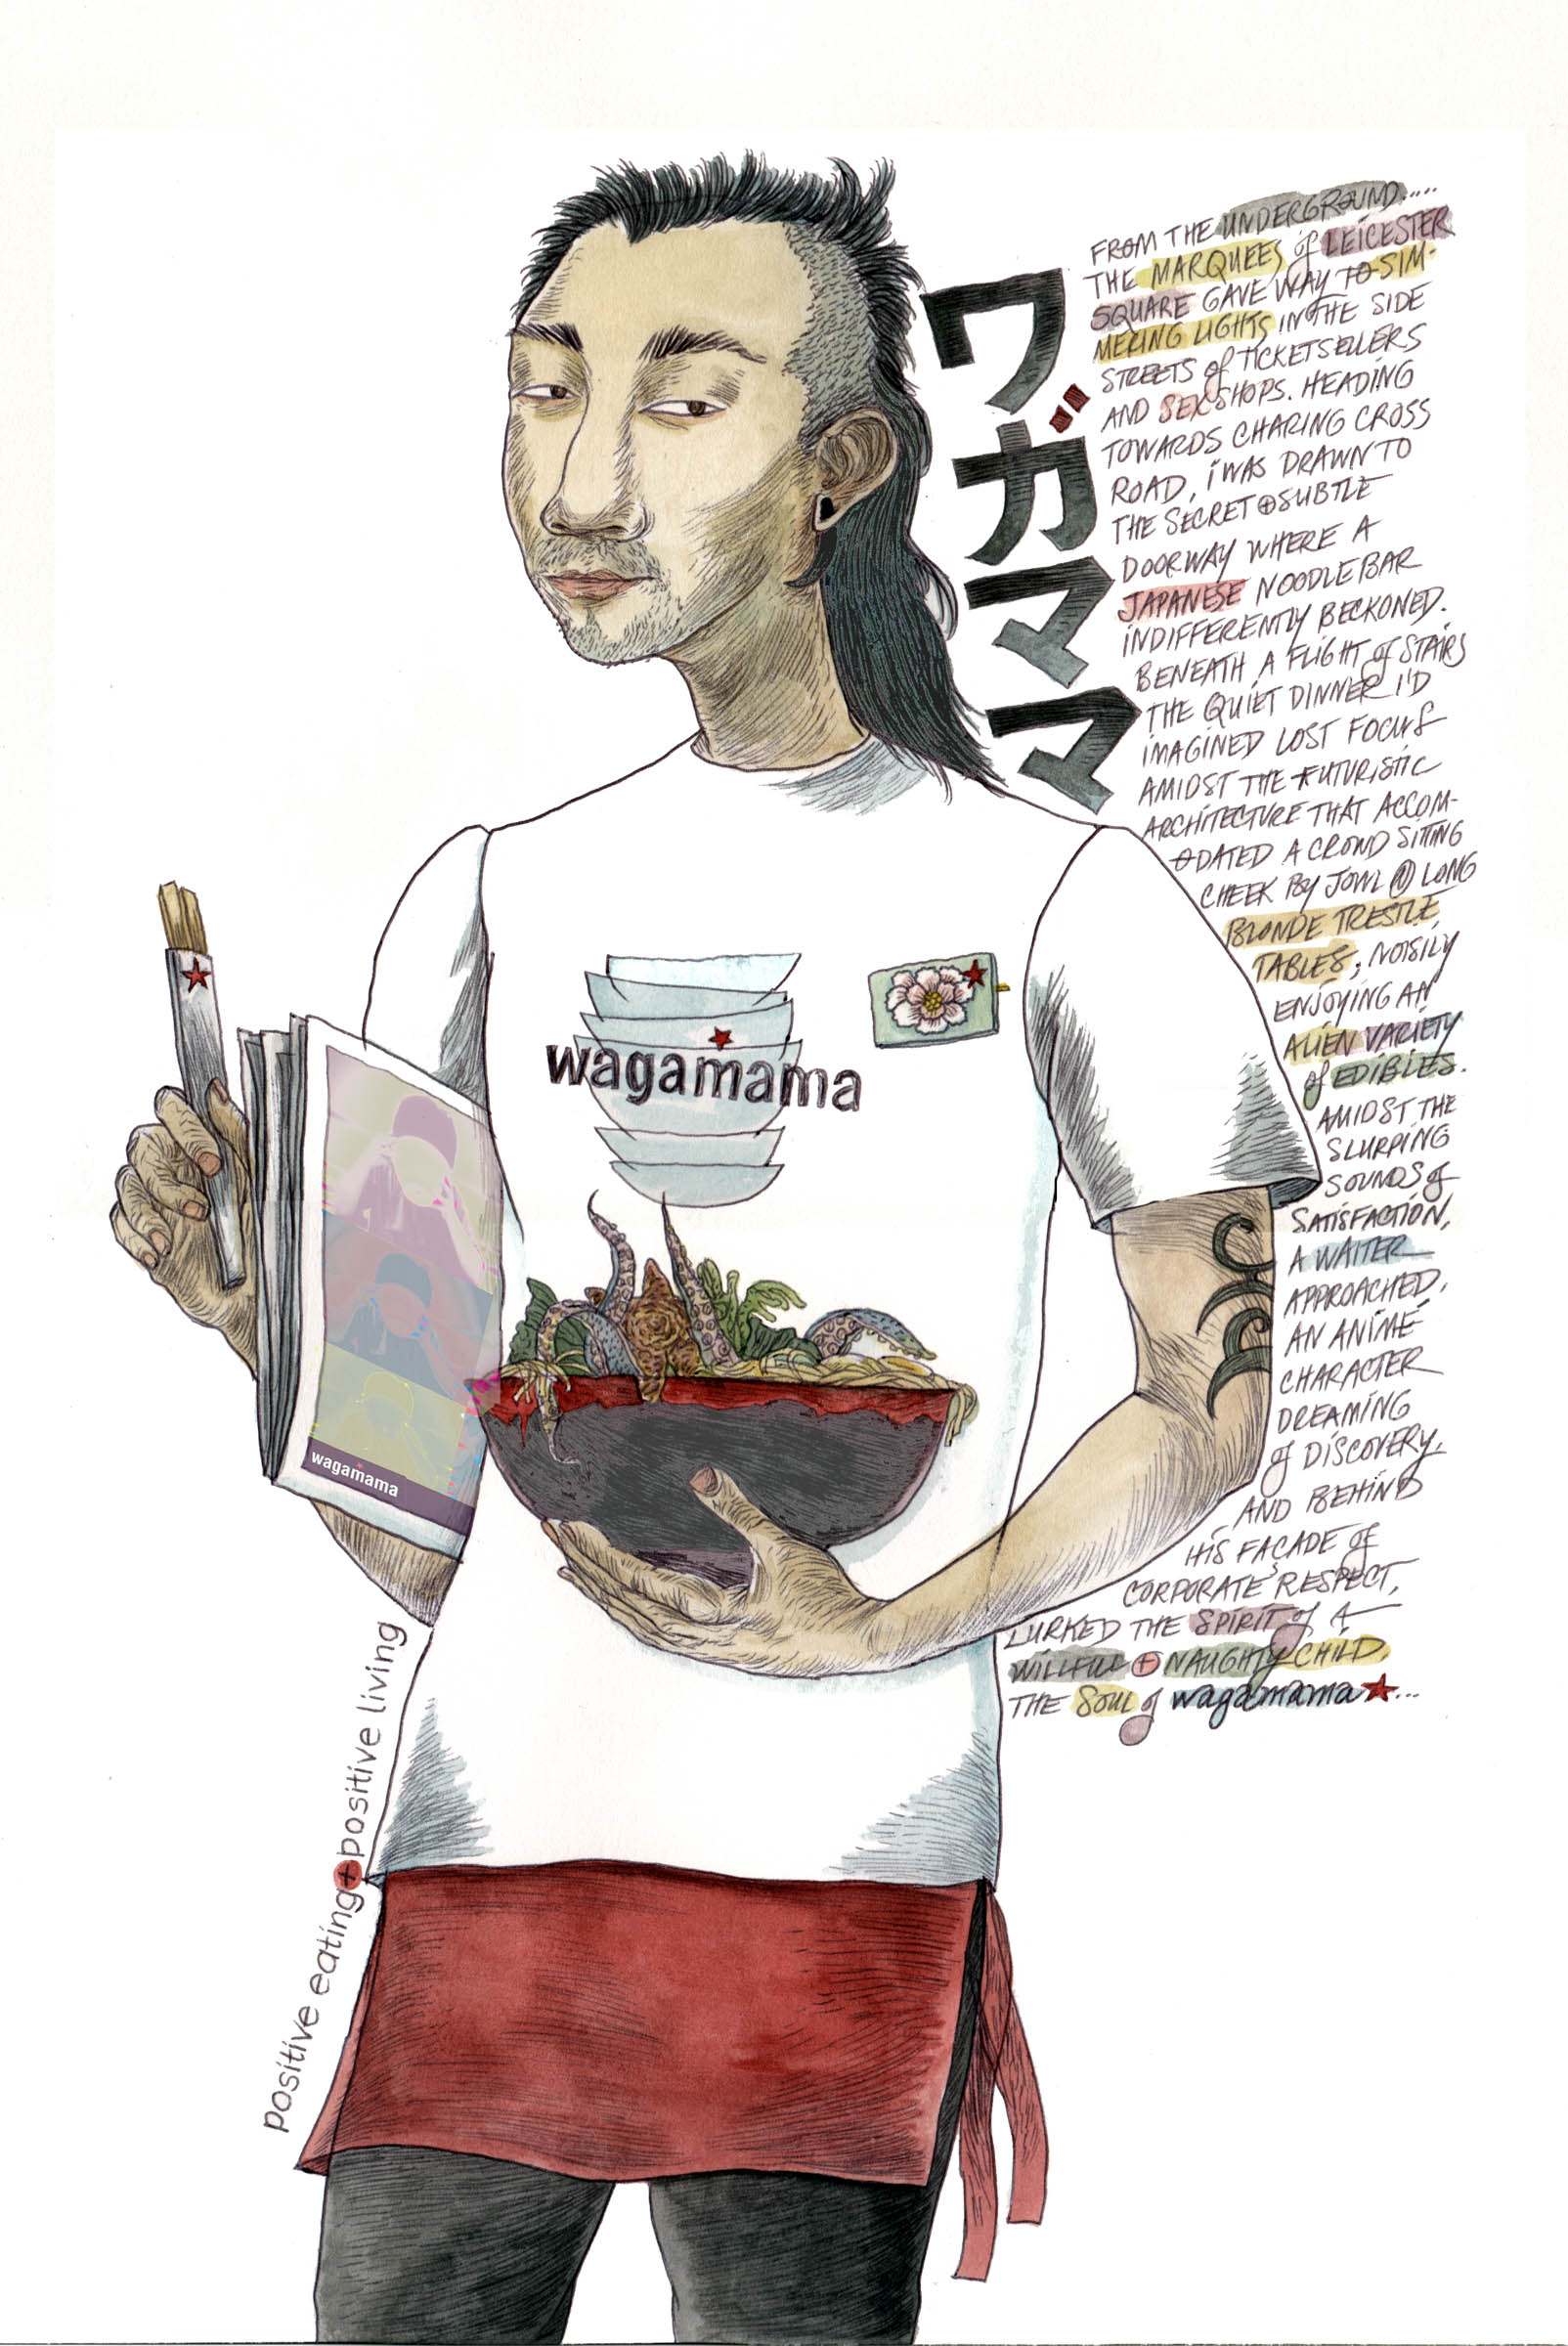 FROM THE UNDERGROUND.....
THE MARQUEES of LEICESTER
SQUARE GAVE WAY TO SIM-
MERING LIGHTS IN THE SIDE
STREETS of TICKETSELLERS
AND SEX SHOPS. HEADING
TOWARDS CHARING CROSS
ROAD, I WAS DRAWN TO
THE SECRET ⊕ SUBTLE
DOORWAY WHERE A
JAPANESE NOODLE BAR
INDIFFERENTLY BECKONED.
BENEATH A FLIGHT of STAIRS
THE QUIET DINNER I'D
IMAGINED LOST FOCUS
AMIDST THE FUTURISTIC
ARCHITECTURE THAT ACCOM-
ODATED A CROWD SITTING
CHEEK BY JOWL @ LONG
BLONDE TRESTLE
TABLES; NOISILY
ENJOYING AN
ALIEN VARIETY
of EDIBLES.
AMIDST THE
SLURPING
SOUNDS of
SATISFACTION,
A WAITER
APPROACHED,
AN ANIMÉ
CHARACTER
DREAMING
of DISCOVERY.
AND BEHIND
HIS FAÇADE of
CORPORATE RESPECT,
LURKED THE SPIRIT of A
WILLFULL + NAUGHTY CHILD.
THE SOUL of wagamama★...
ワガママ
wagamama
wagamama
positive eating+positive living